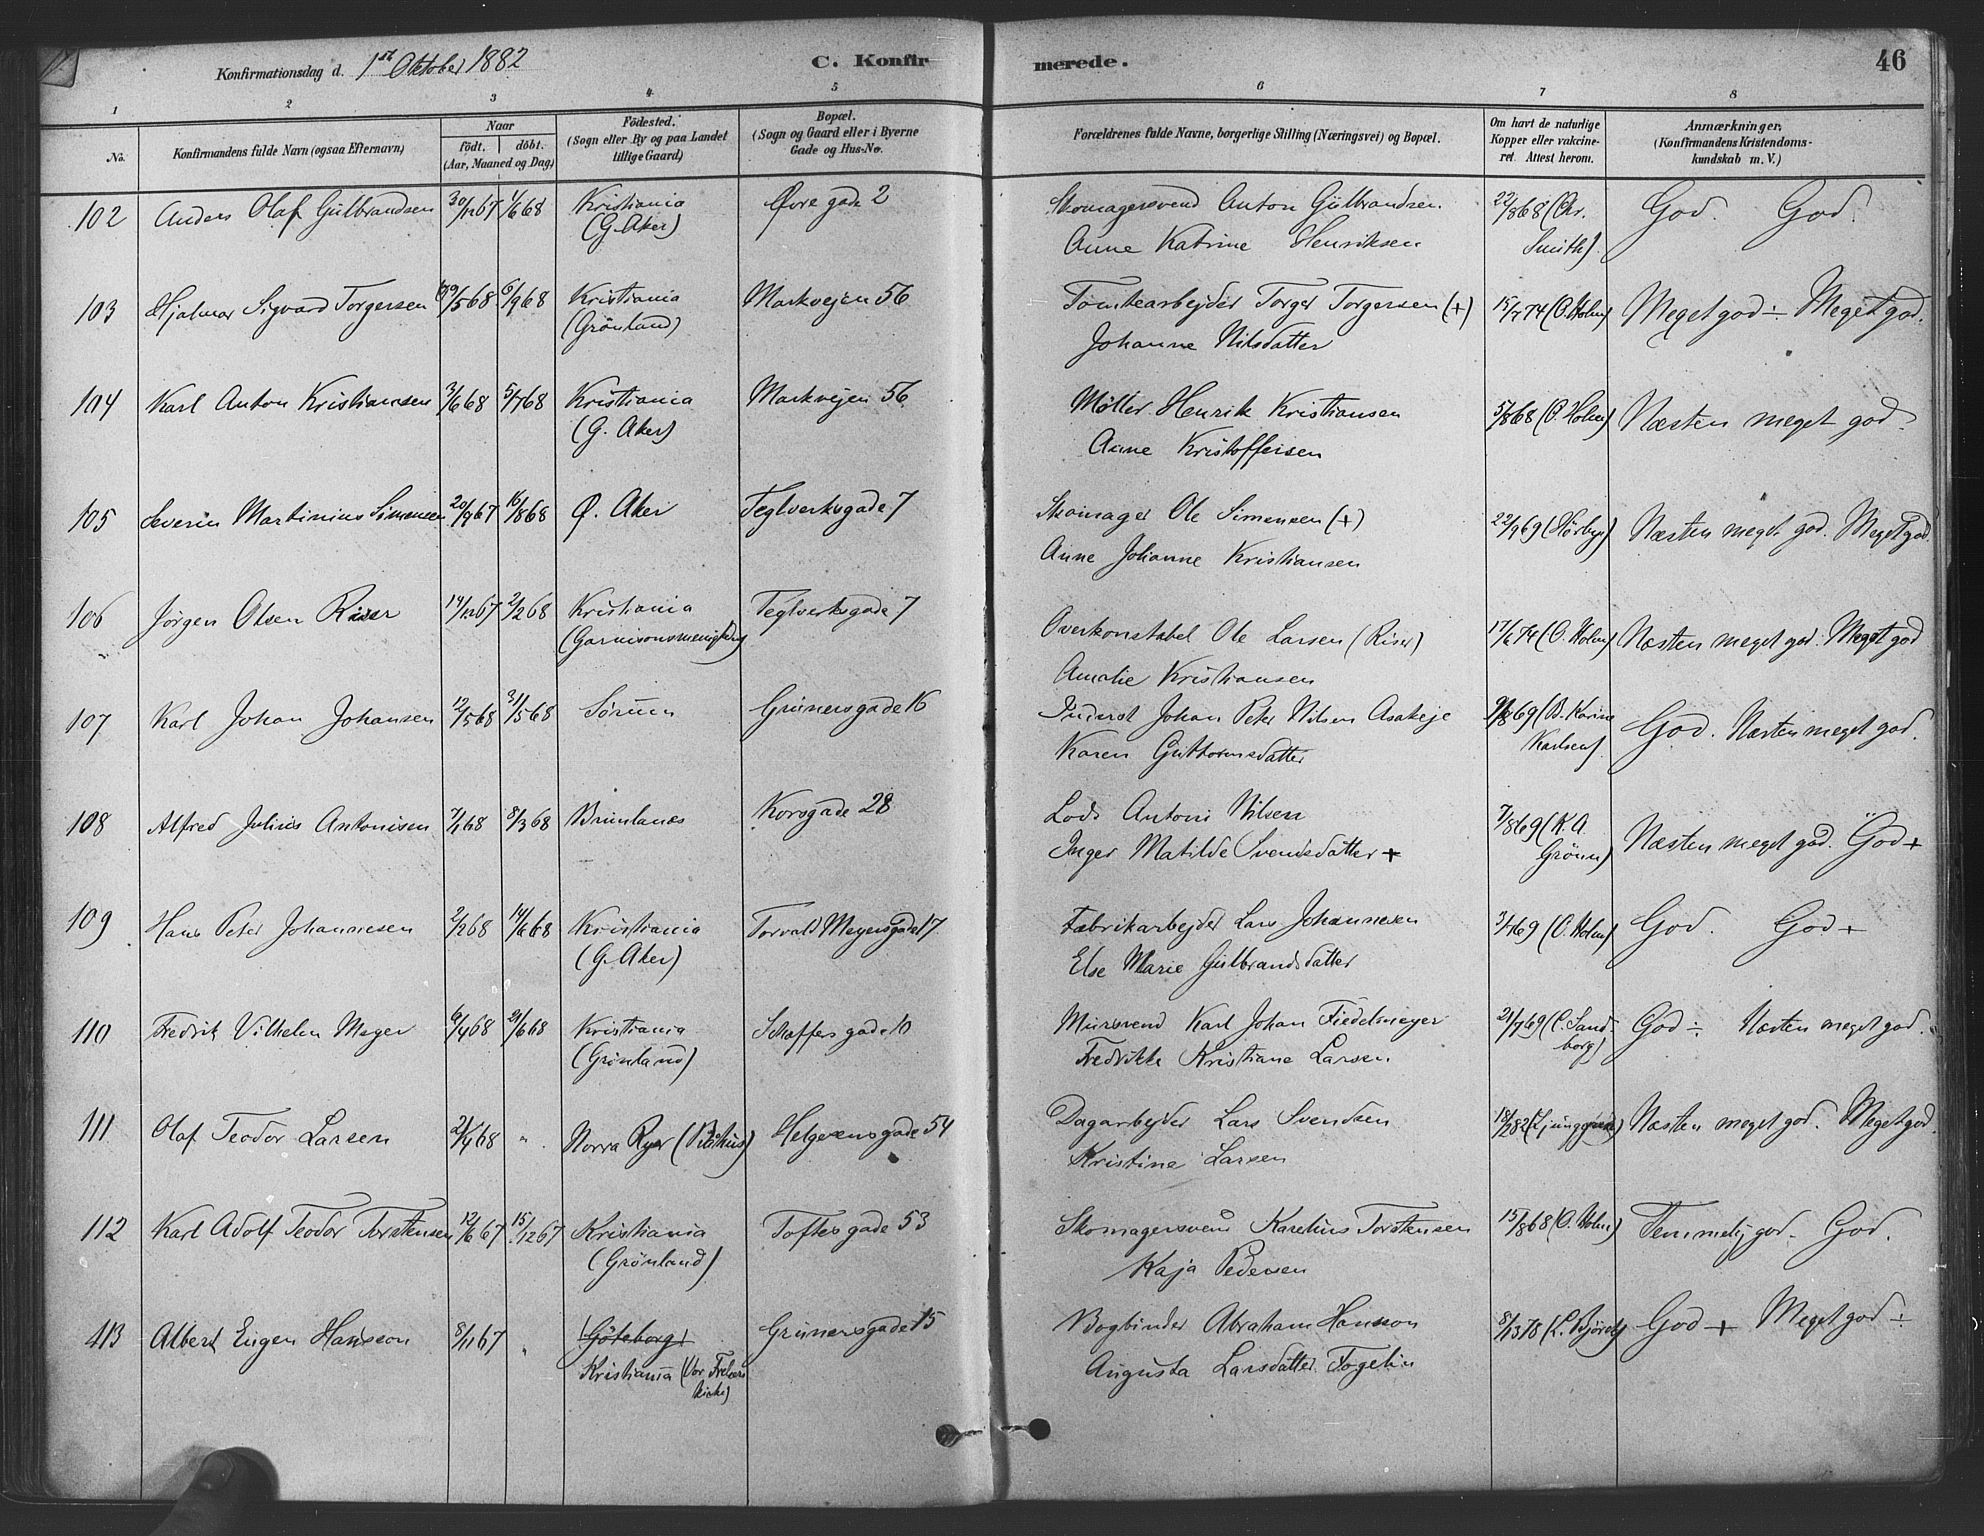 Konfirmationsdag d. 1st Oktober 1882
C. Konfirmerede.
46
1 2 3 4 5 6 7 8
No.
Konfirmandens fulde Navn (ogsaa Efternavn)
Naar
født. døbt.
(Aar, Maaned og Dag)
Fødested.
(Sogn eller By og paa Landet
tillige Gaard)
Bopæl.
(Sogn og Gaard eller i Byerne
Gade og Hus-No.
Forældrenes fulde Navne, borgerlige Stilling (Næringsvei) og Bopæl.
Om havt de naturlige
Kopper eller vakcine-
ret. Attest herom.
Anmærkninger.
(Konfirmandens Kristendoms-
kundskab m. V.)
102 Anders Olaf Gulbrandsen 30/12 67 1/6 68 Kristiania Øvre gade 2 Skomagersvend Anton Gulbrandsen 22/8 68 (Chr. God. God.
(G. Aker) Anne Katrine Henriksen Smith)
103 Hjalmar Sigvard Torgersen 19/5 68 6/9 68 Kristiania Markvejen 56 Tomtearbejder Torger Torgersen (+) 15/7 74 (O. Holm) Meget god ÷ Meget god.
(Grönland) Johanne Nilsdatter
104 Karl Anton Kristiansen 3/6 68 5/7 68 Kristiania Markvejen 56 Møller Henrik Kristiansen 5/8 68 (O. Holm) Næsten meget god.
(G. Aker) Anne Kristoffersen
105 Severin Martinius Simensen 20/9 67 16/8 68 Ø. Aker Teglverksgade 7 Skomager Ole Simensen (+) 22/9 69 (Hörbye) Næsten meget god. Meget god
Anne Johanne Kristiansen
106 Jörgen Olsen Riser 14/12 67 2/2 68 Kristiania Teglverksgade 7 Overkonstabel Ole Larsen (Riser) 17/6 74 (O. Holm) Næsten meget god. Meget god
(Garnisonsmenigheden) Amalie Kristiansen
107 Karl Johan Johansen 12/5 68 31/5 68 Sørum Grünersgade 16 Inderst Johan Peter Nilsen Asakeje 9/8 69 (B. Karine God. Næsten meget god.
Karen Guttormsdatter Karlsen)
108 Alfred Julius Antonisen 7/1 68 8/3 68 Brunlanæs Korsgade 28 Lods Antoni Nilsen 7/8 69 (K. A. Næsten meget god. God +
Inger Matilde Svendsdatter + Grönn)
109 Hans Peter Johannesen 2/2 68 14/6 68 Kristiania Torvald Meyersgade 17 Fabrikarbejder Lars Johannesen 3/7 69 (O. Holm) God. God +
(G. Aker) Else Marie Gulbrandsdatter
110 Fredrik Vilhelm Meyer 6/4 68 21/6 68 Kristiania Schaffersgade 10 Mursvend Karl Johan Fiedelmeyer 21/7 69 (C. Sand- God ÷ Næsten meget god.
(Grönland) Fredrikke Kristiane Larsen borg)
111 Olaf Teodor Larsen 21/4 68 " Norra Ryer (Båhus) Helgesensgade 54 Dagarbejder Lars Svendsen 18/2 82 (Ljunggren) Næsten meget god. Meget god.
Kristine Larsen
112 Karl Adolf Teodor Torstensen 12/6 67 15/12 67 Kristiania Toftesgade 53 Skomagersvend Karelius Torstensen 15/8 68 (O. Holm) Temmelig god. God.
(Grønland) Kaja Pedersen
113 Albert Eugen Hansson 8/11 67 " (Göteborg) Grünersgade 15 Bogbinder Abraham Hansson 8/1 78 God + Meget god ÷
Kristiania (Vor Frelsers Augusta Larsdatter Fogelin
kirke)